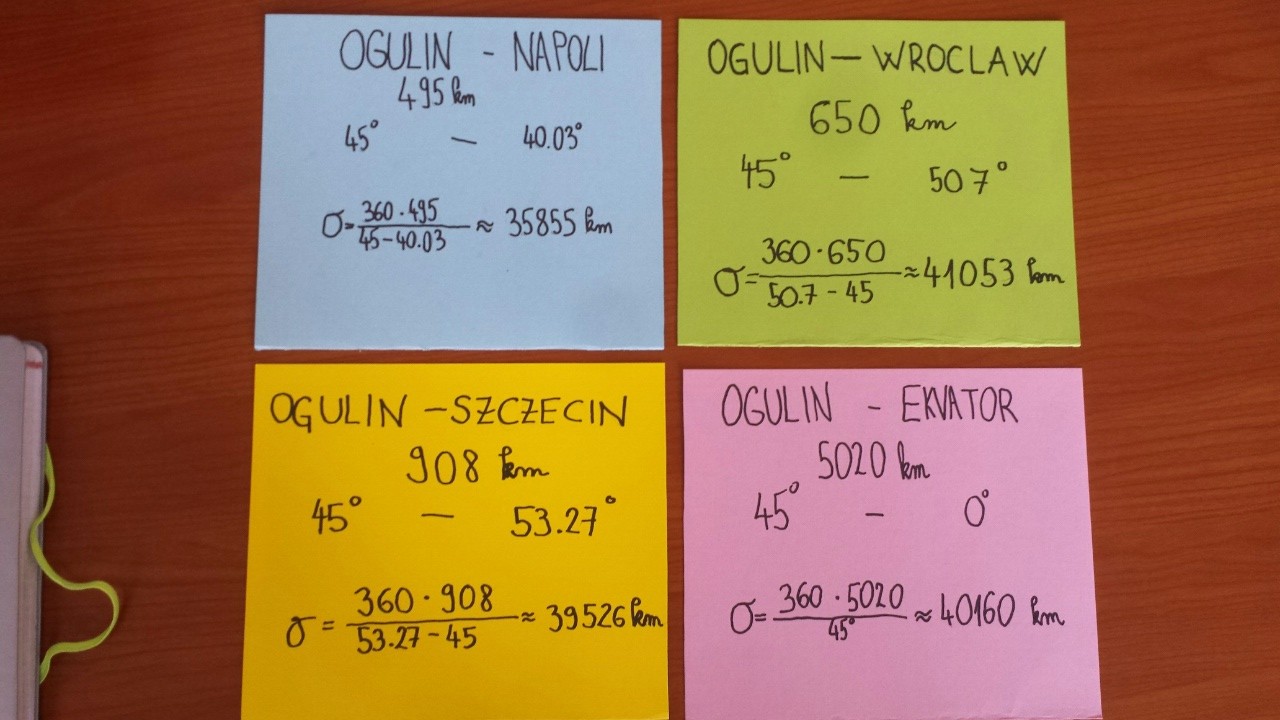 OGULIN - NAPOLI
495 km
45° — 40.03°
σ = 360 · 495 / 45 - 40.03 ≈ 35855 km
OGULIN — WROCLAW
650 km
45° — 507°
σ = 360 · 650 / 50.7 - 45 ≈ 41053 km
OGULIN - SZCZECIN
908 km
45° — 53.27°
σ = 360 · 908 / 53.27 - 45 ≈ 39526 km
OGULIN - EKVATOR
5020 km
45° - 0°
σ = 360 · 5020 / 45° ≈ 40160 km